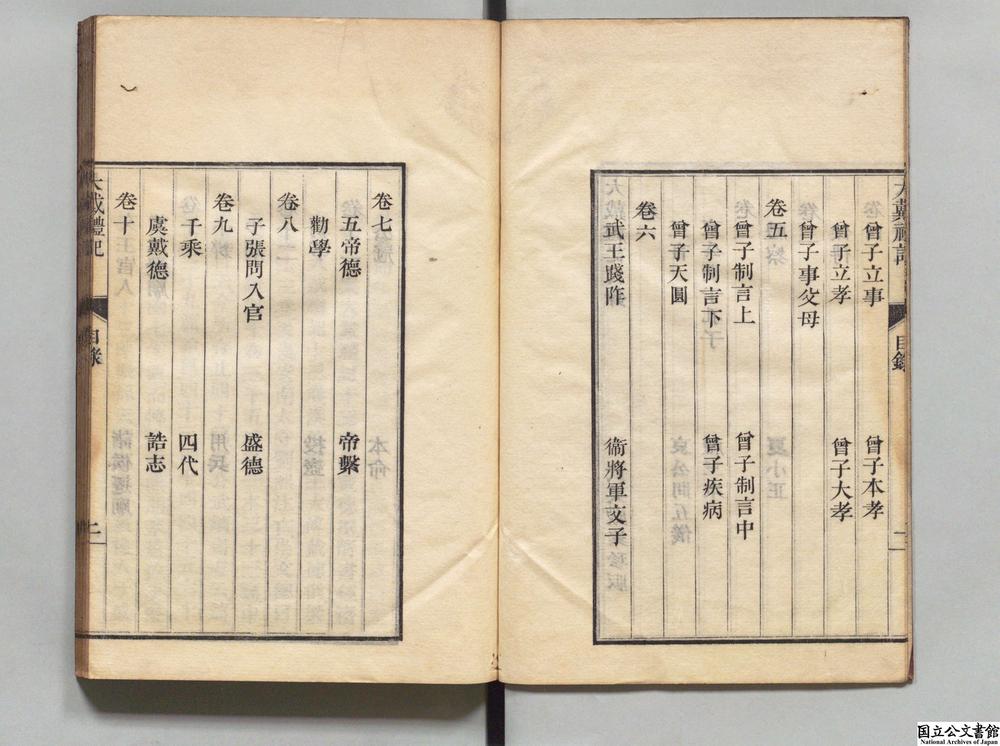 曾子立事 曾子本孝
曾子立孝 曾子大孝
曾子事父母
卷五
曾子制言上 曾子制言中
曾子制言下 曾子疾病
曾子天圓
卷六
武王踐阼 衞將軍文子
大戴禮記 目錄 二
卷七
五帝德 帝繫
勸學
卷八
子張問入官 盛德
卷九
千乘 四代
虞戴德 誥志
卷十
国立公文書館
National Archives of Japan